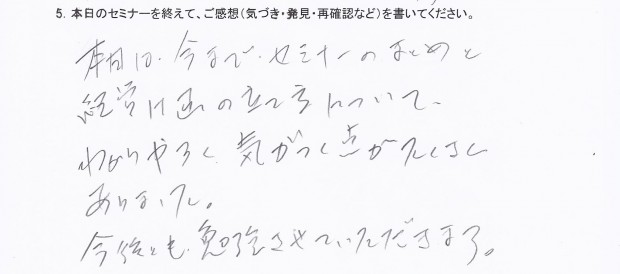 5. 本日のセミナーを終えて、ご感想（気づき・発見・再確認など）を書いてください。
本日は、今まで、セミナーのまとめと
経営計画の立て方について、
わかりやすく、気がつく点がたくさん
ありました。
今後とも、勉強させていただきます。